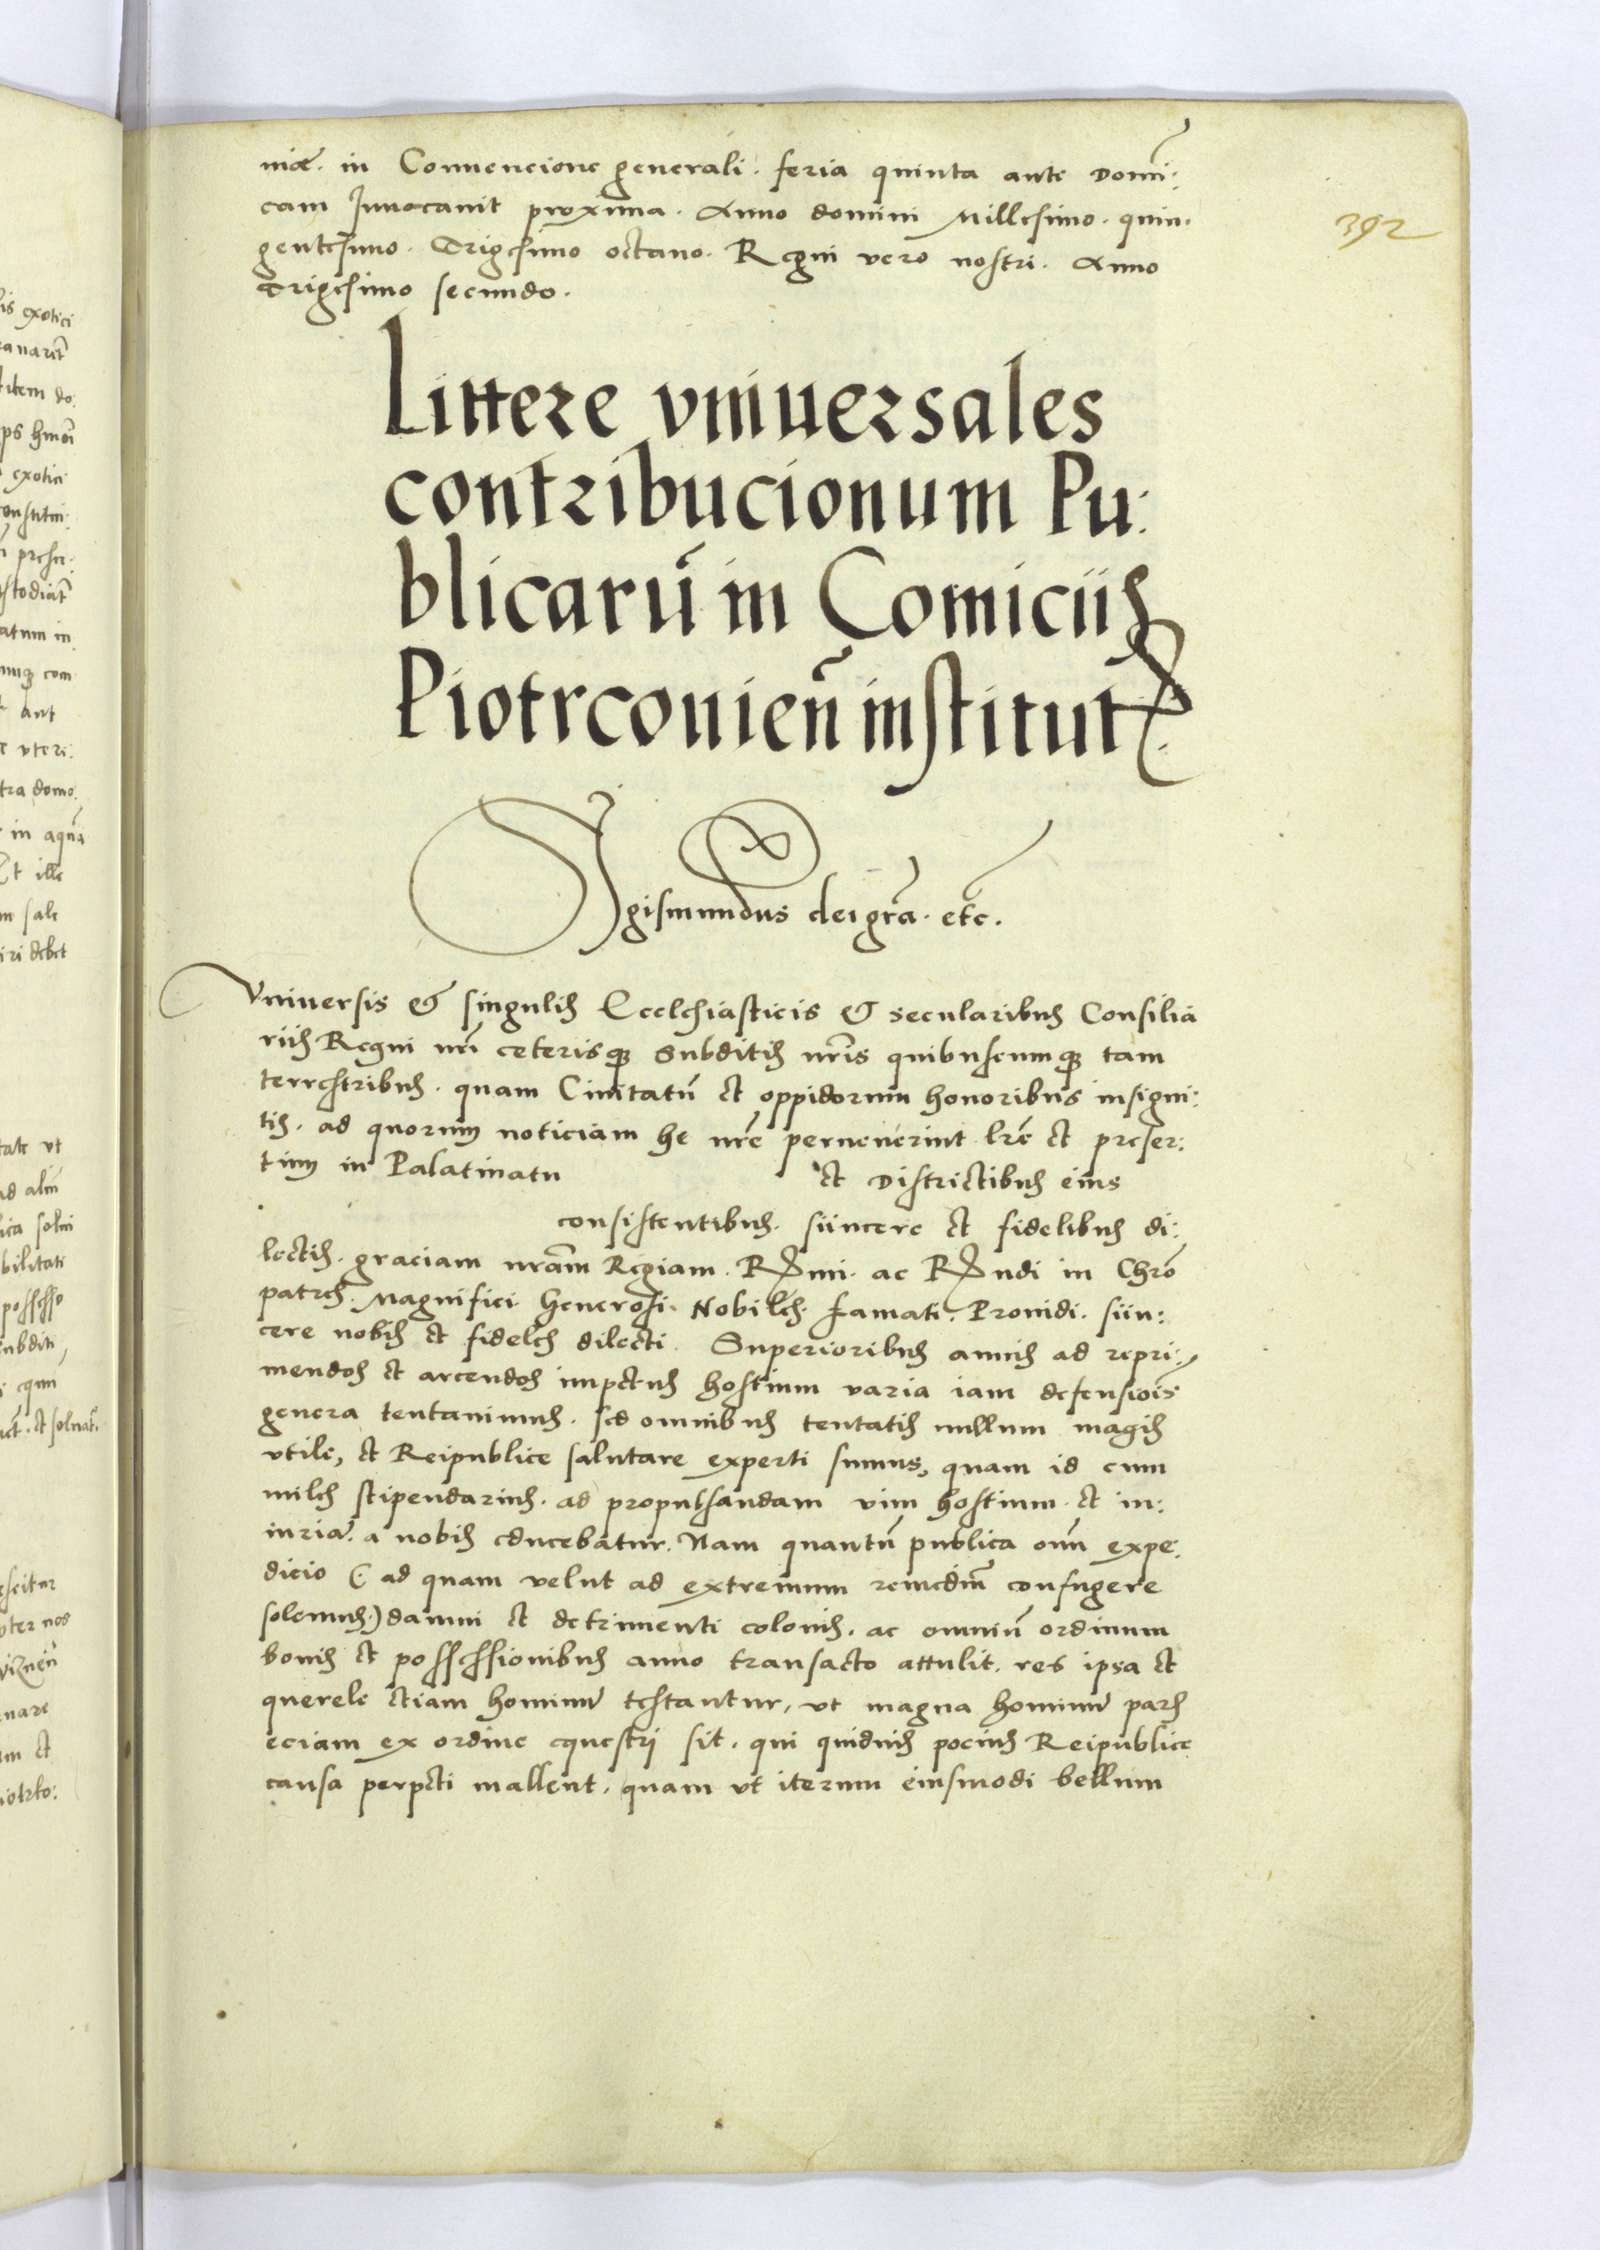 niae. in Conuencione generali. feria quinta ante Domi͂:
cam Inuocauit proxima. Anno domini Millesimo. quin:
gentesimo. Trigesimo octauo. Regni vero nostri. Anno
Trigesimo secundo.
392
Littere vniuersales
contribucionum Pu:
blicaru͂ in Comiciis
Piotrconien͂ institut
Sigismundus dei gr͂a. etc.
Vniuersis & singulis Ecclesiasticis & secularibus Consilia
riis Regni nr͂i ceterisqꝫ Subditis nr͂is quibuscumqꝫ tam
terrestribus. quam Ciuitatu͂ et oppidorum honoribus insigni:
tis. ad quorum noticiam he nr͂e peruenerint lr͂e et preser:
tim in Palatinatu et Districtibus eius
consistentibus. siincere et fidelibus di:
lectis. graciam nr͂am Regiam. R͂mi. ac R͂ndi in Chr͂o
patres. Magnifici. Generosi. Nobiles. famati. Prouidi. siin:
cere nobis et fideles dilecti. Superioribus annis ad repri:
mendos et arcendos impetus hostium varia iam defensio͂is
genera tentauimus. sed omnibus tentatis nullum magis
vtile, et Reipublice salutare experti sumus, quam id cum
miles stipendarius. ad propulsandam vim hostium. et in:
iuria͂. a nobis educebatur. Nam quantu͂ publica om͂ expe:
dicio (ad quam velut ad extremum remediu͂ confugere
solemus.) damni et detrimenti colonis. ac omniu͂ ordinum
bonis et possessionibus anno transacto attulit. res ipsa et
querele etiam hominu͂ testantur, vt magna hominu͂ pars
eciam ex ordine equestri sit. qui quiduis pocius Reipublice
causa perpeti mallent. quam vt iterum eiusmodi bellum
is exotici
item do:
exotici
atum in
com
aut
vteri:
tra domo.
in aqua͂
Et ille
m sale
iri debet
tate vt
bilitati
ubditi,
scitur
pter nos
nare
m et